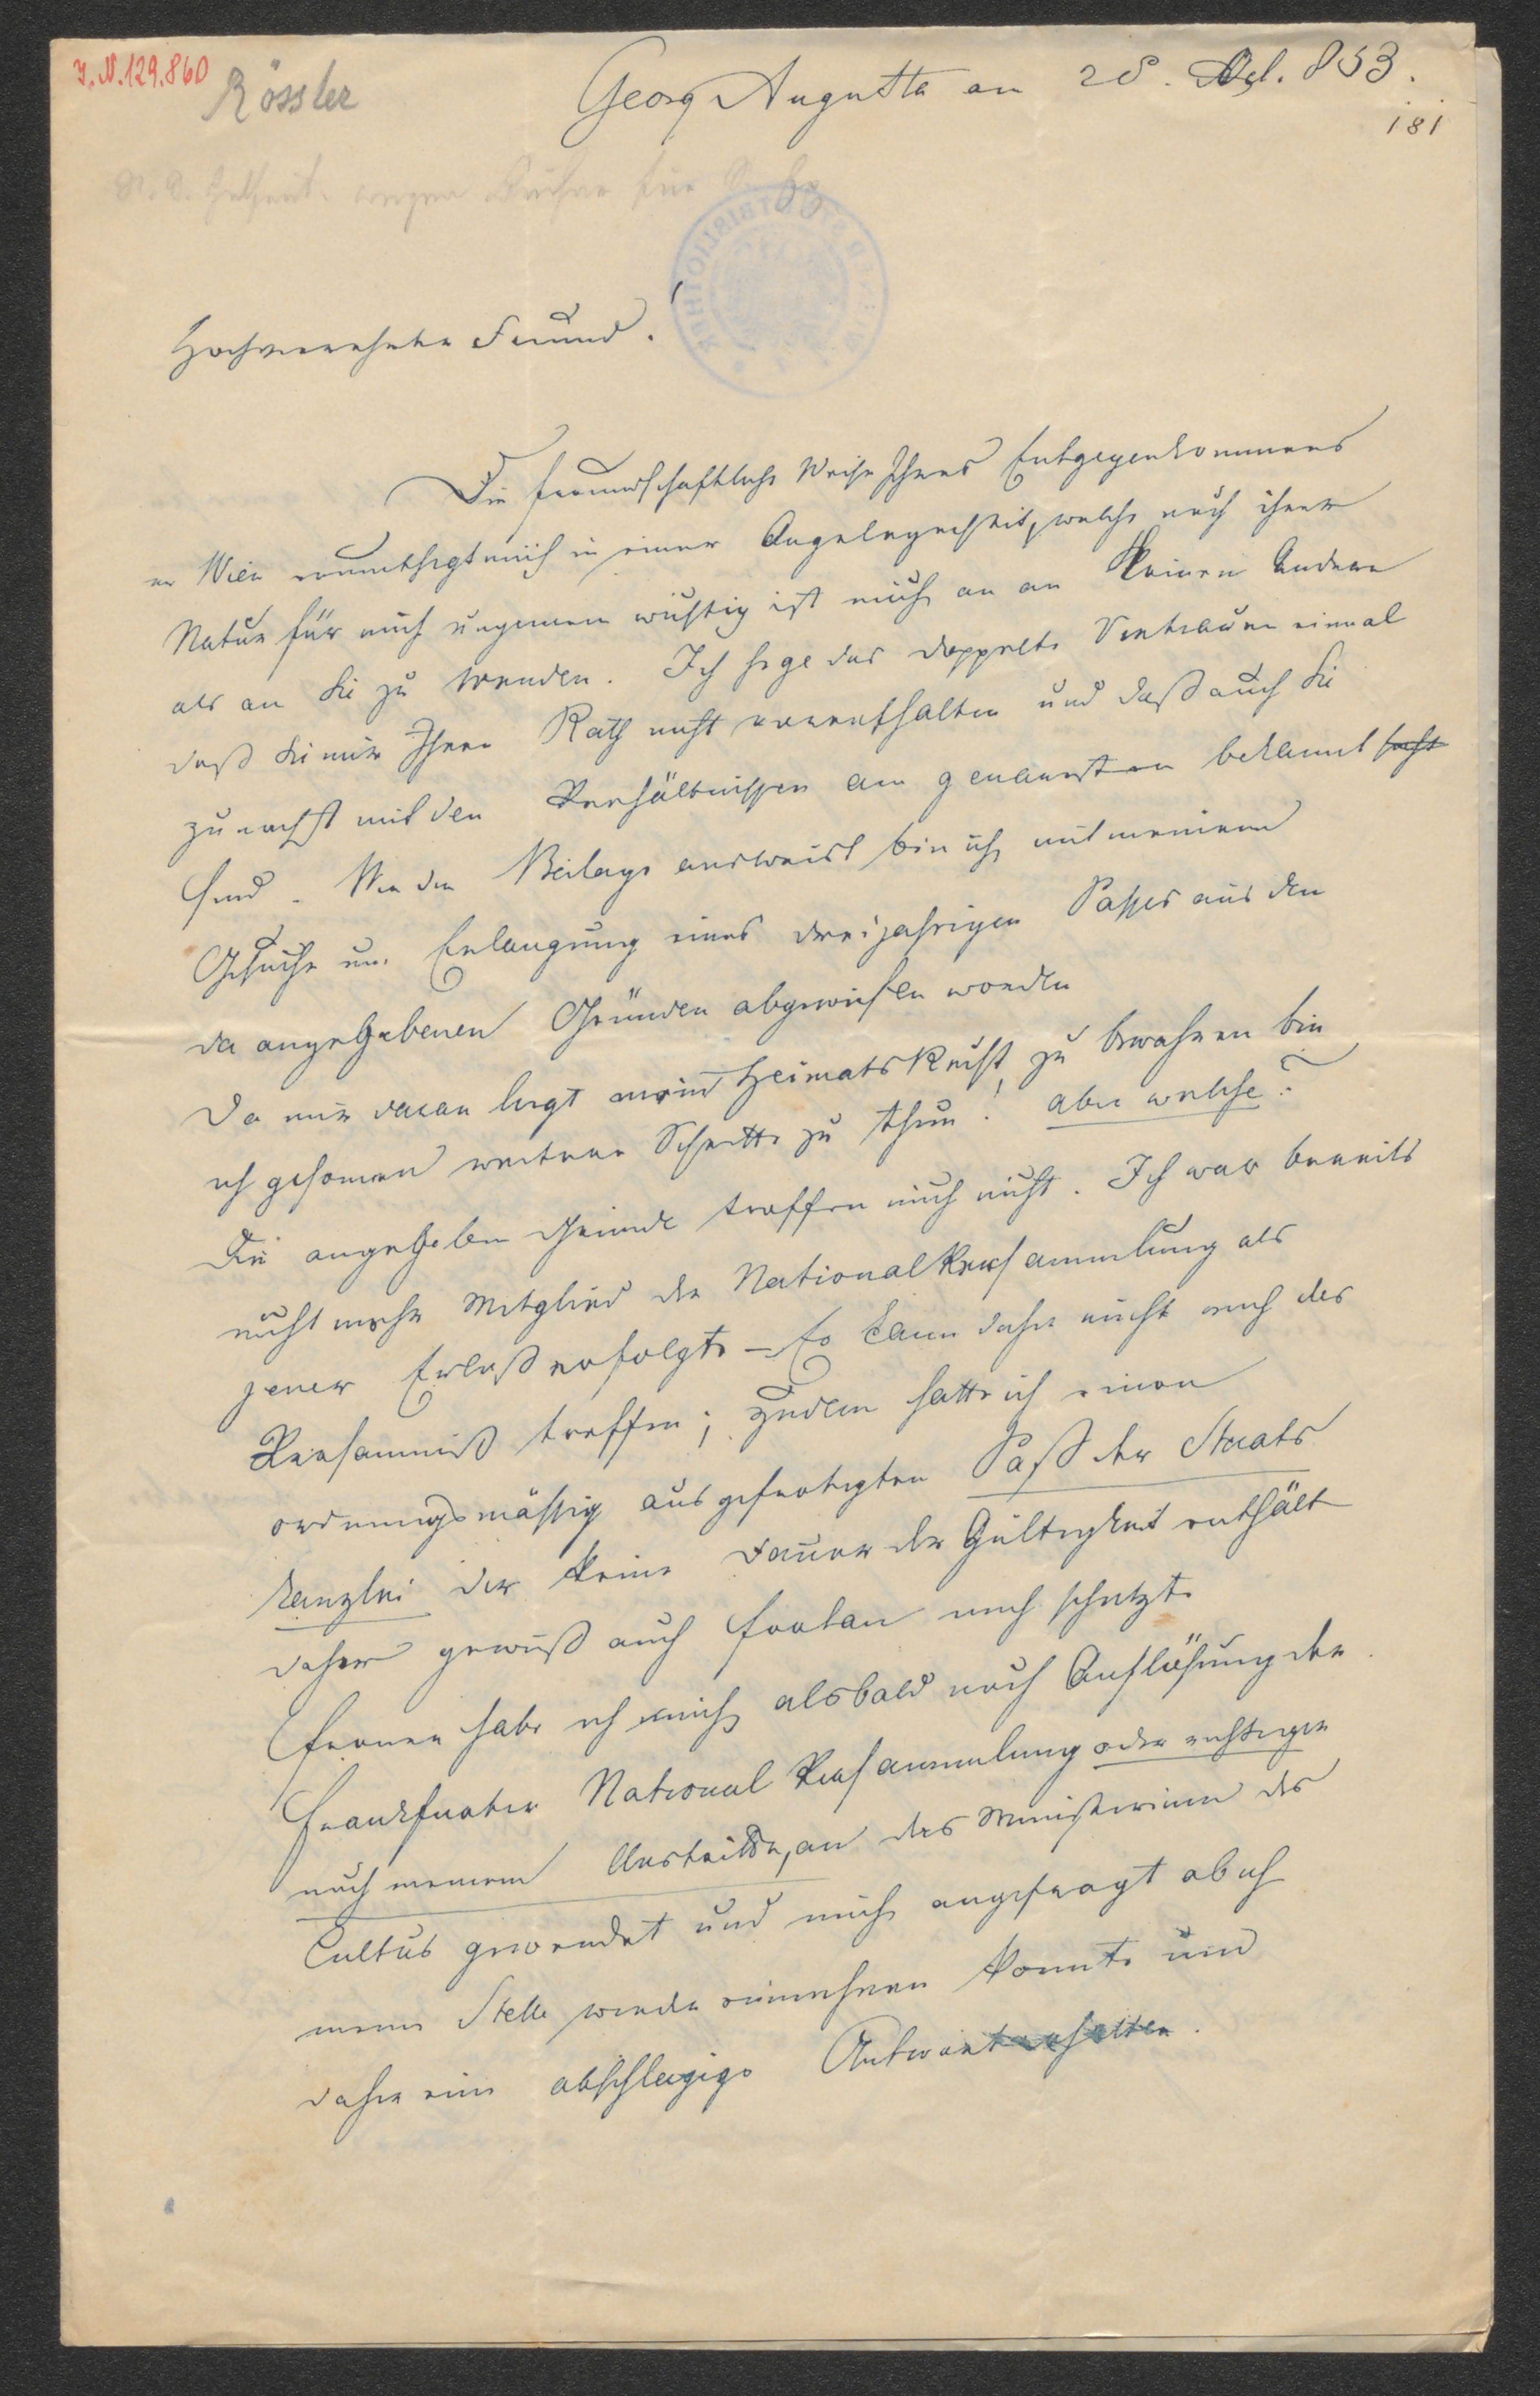 I. N. 129.860
Rössler
Georg Augusta am 28. Okt. 853.
181
N. S. wegen Bücher für
Hochverehrter Freund!
Die freundschaftliche Weise Ihres Entgegenkommens
in Wien ermuthigt mich in einer Angelegenheit, welche nach ihrer
Natur für mich ungemein wichtig ist mich an an keinen Andern
als an Sie zu wenden. Ich hege das doppelte Vertrauen einmal
daß Sie mir Ihren Rath nicht vorenthalten und daß auch Sie
zunachst mit den Verhältnissen am genauesten bekannt
sind. Wie die Beilage ausweist bin ich mit meinem
Gesuche um Erlangung eines dreijahrigen Passes aus den
da angegebenen Gründen abgewiesen worden
Da mir daran liegt mein Heimatsrecht zu bewahren bin
ich gesonnen weitere Schritte zu thun! aber welche?
Die angegeben Gründe treffen mich nicht. Ich war bereits
nicht mehr Mitglied der Nationalversammlung als
jener Erlaß erfolgte – Es kann daher nicht mich das
Versaumniß treffen; zudem hatte ich einen
ordnungsmässig ausgefertigten Paß der Staats
kanzlei der keine Dauer der Gültigkeit enthält
daher gewiß auch fortan mich schützte
Ferner habe ich mich alsbald nach Auflösung der
Frankfurter National Versammlung oder richtiger
nach meinem Austritte, an das Ministerium des
Cultus gewendet und mich angefragt ob ich
meine Stelle wieder einnehmen konnte und
daher eine abschlagige Antwort erhalten.